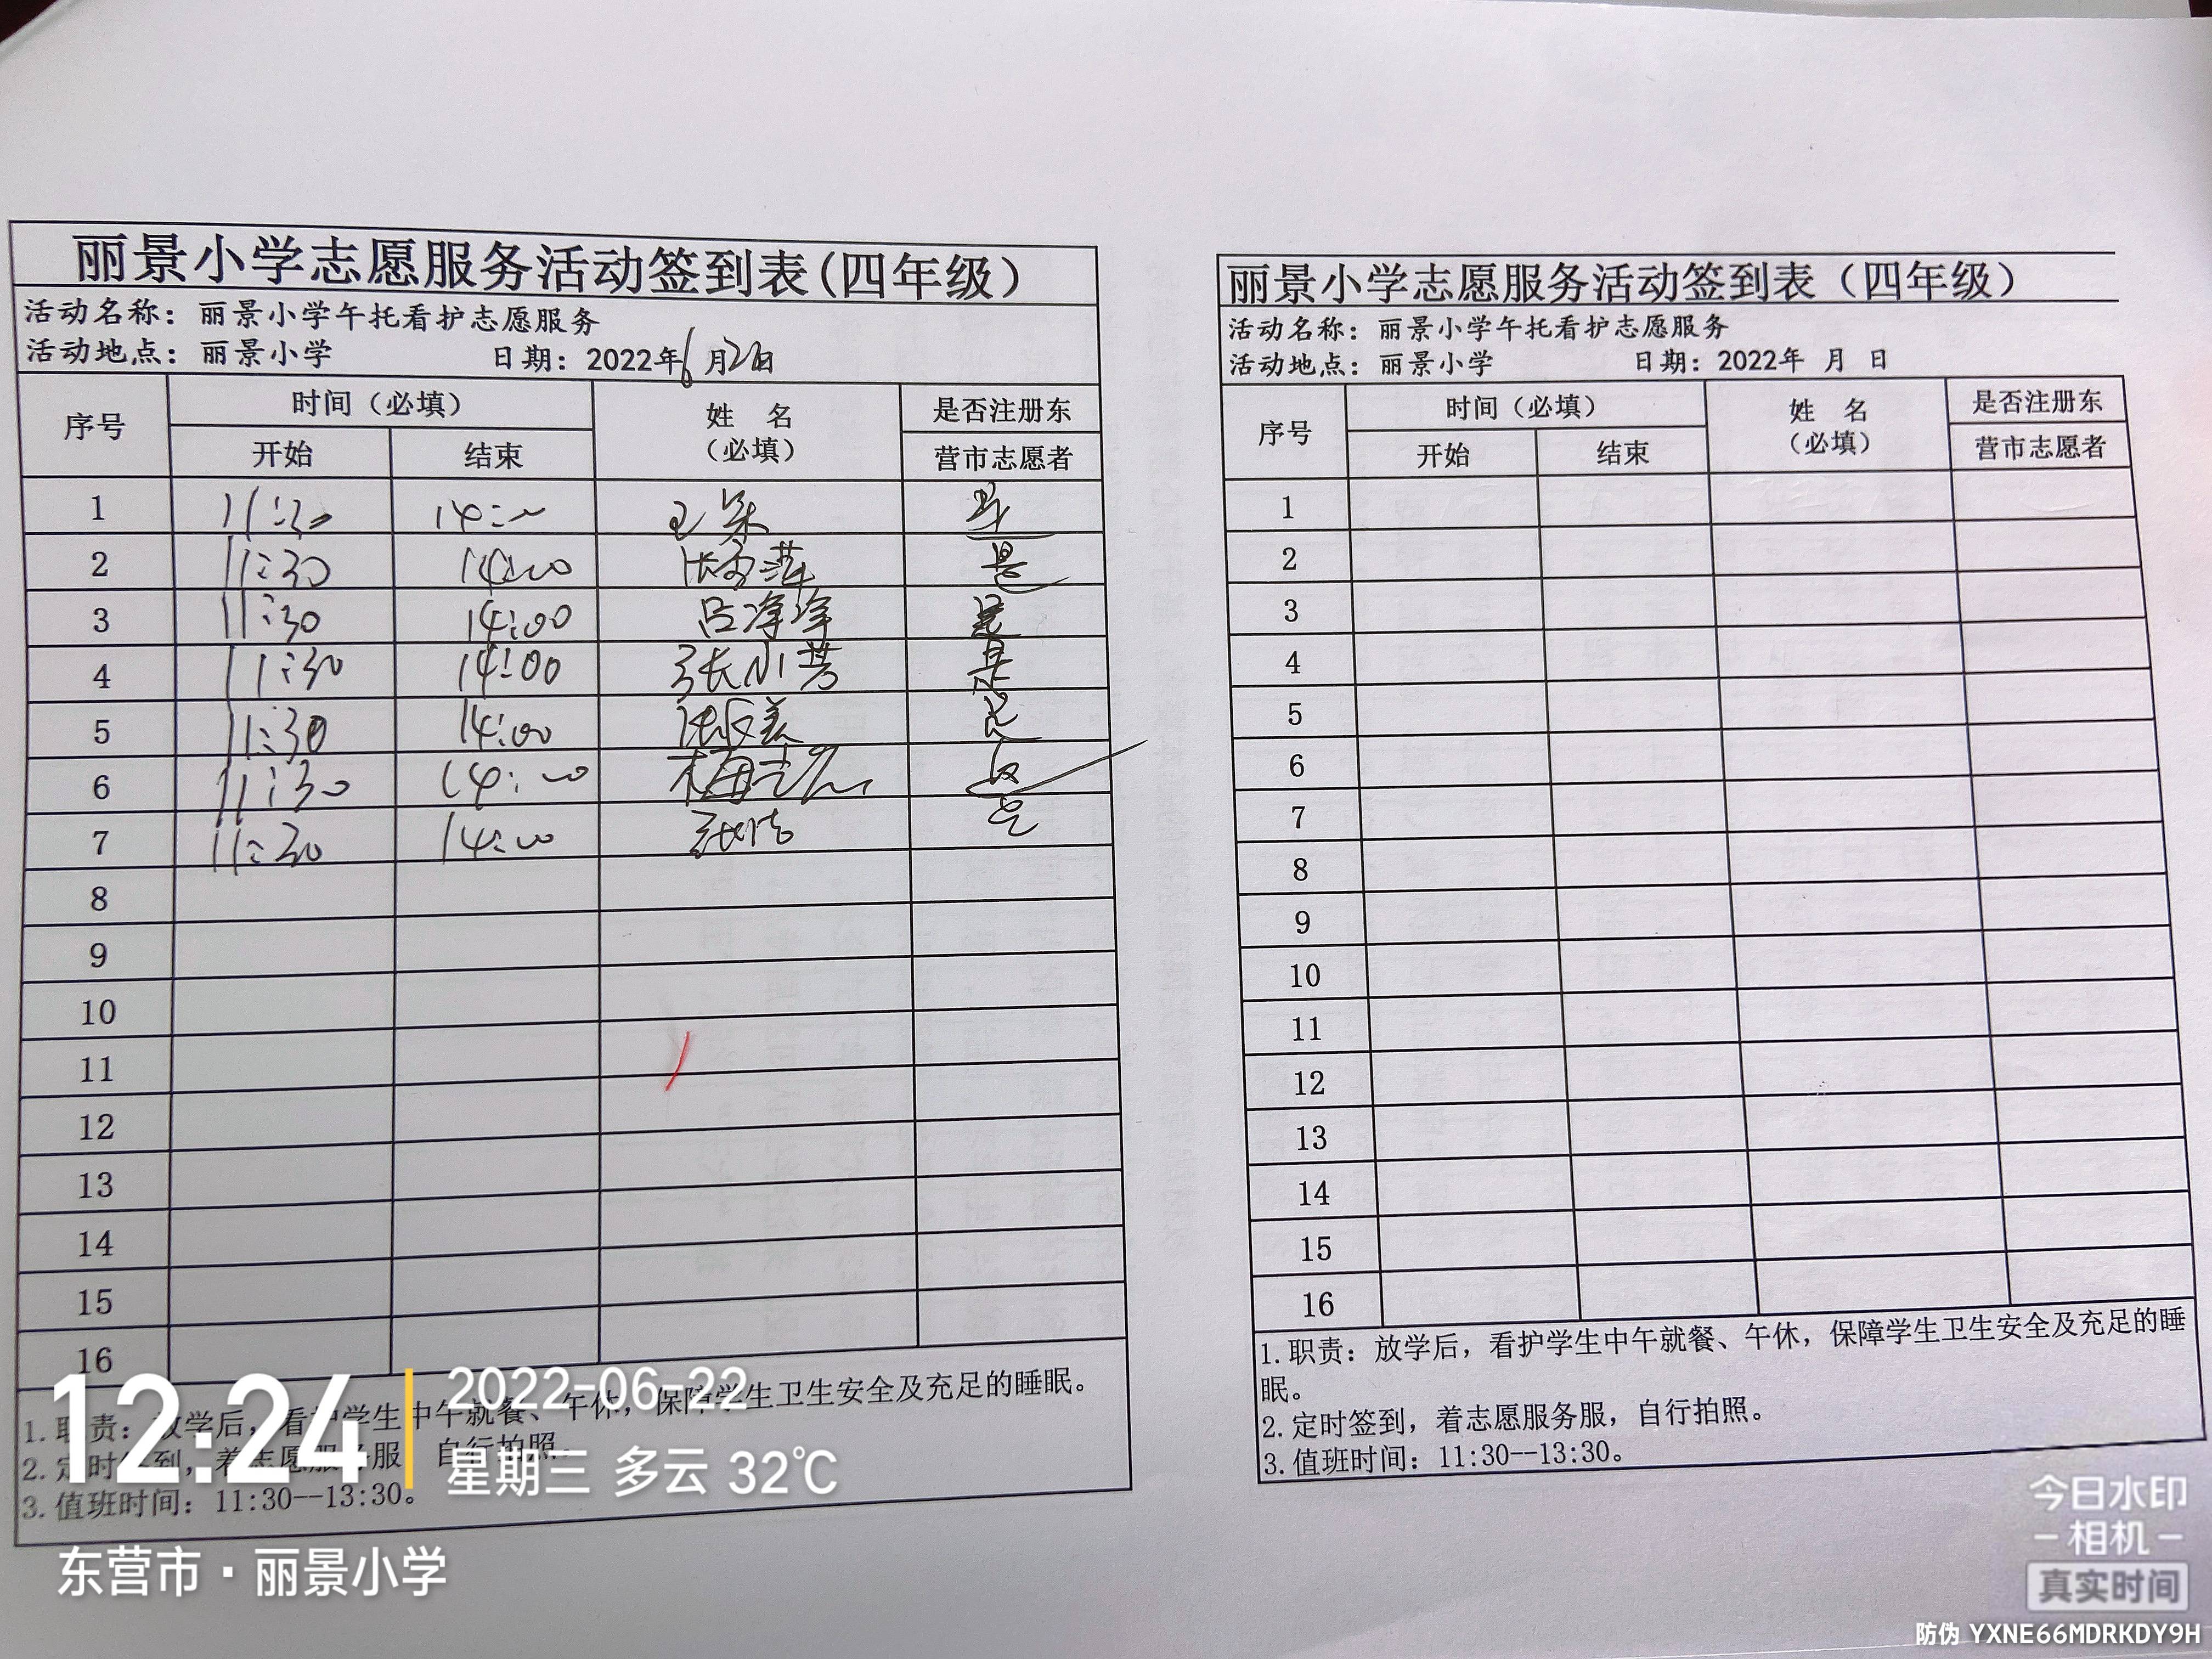 丽景小学志愿服务活动签到表(四年级)
活动名称：丽景小学午托看护志愿服务
活动地点：丽景小学 日期：2022年6月22日
序号 时间（必填） 姓 名（必填） 是否注册东营市志愿者
开始 结束
1 11:30 14:00 是
2 11:30 14:00 是
3 11:30 14:00 是
4 11:30 14:00 张小芳 是
5 11:30 14:00 是
6 11:30 14:00 是
7 11:30 14:00 是
8
9
10
11
12
13
14
15
16
1.职责：放学后，看护学生中午就餐、午休，保障学生卫生安全及充足的睡眠。
2.定时签到，着志愿服务服，自行拍照。
3.值班时间：11:30--13:30。
丽景小学志愿服务活动签到表（四年级）
活动名称：丽景小学午托看护志愿服务
活动地点：丽景小学 日期：2022年 月 日
序号 时间（必填） 姓 名（必填） 是否注册东营市志愿者
开始 结束
1
2
3
4
5
6
7
8
9
10
11
12
13
14
15
16
1.职责：放学后，看护学生中午就餐、午休，保障学生卫生安全及充足的睡
眠。
2.定时签到，着志愿服务服，自行拍照。
3.值班时间：11:30--13:30。
12:24
2022-06-22
星期三 多云 32℃
东营市·丽景小学
今日水印
-相机-
真实时间
防伪 YXNE66MDRKDY9H